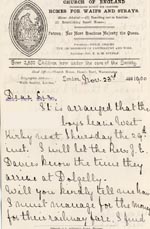 CHURCH OF ENGLAND
HOMES FOR WAIFS AND STRAYS.
Patron, Her Most Gracious Majesty the Queen.
Over 2,800 Children now under the care of the Society.
Nov. 23rd 1900
Dear Sir,
It is arranged that the
boys leave West
Kirby next Thursday the 29th
inst. I will let the Rev. J. E.
Davies know the time they
arrive at Dolgelly.
Will you kindly tell me how
I must manage for the money
for their railway fare. I find